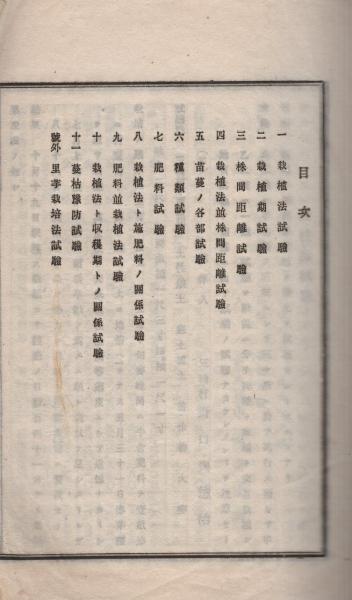 目次
一 栽植法試驗
二 栽植期試驗
三 株間距離試驗
四 栽植法並株間距離試驗
五 苗蔓ノ各部試驗
六 種類試驗
七 肥料試驗
八 栽植法ト施肥料ノ關係試驗
九 肥料並栽植法試驗
十 栽植法ト収穫期トノ關係試驗
十一 蔓枯豫防試驗
號外 里芋栽培法試驗